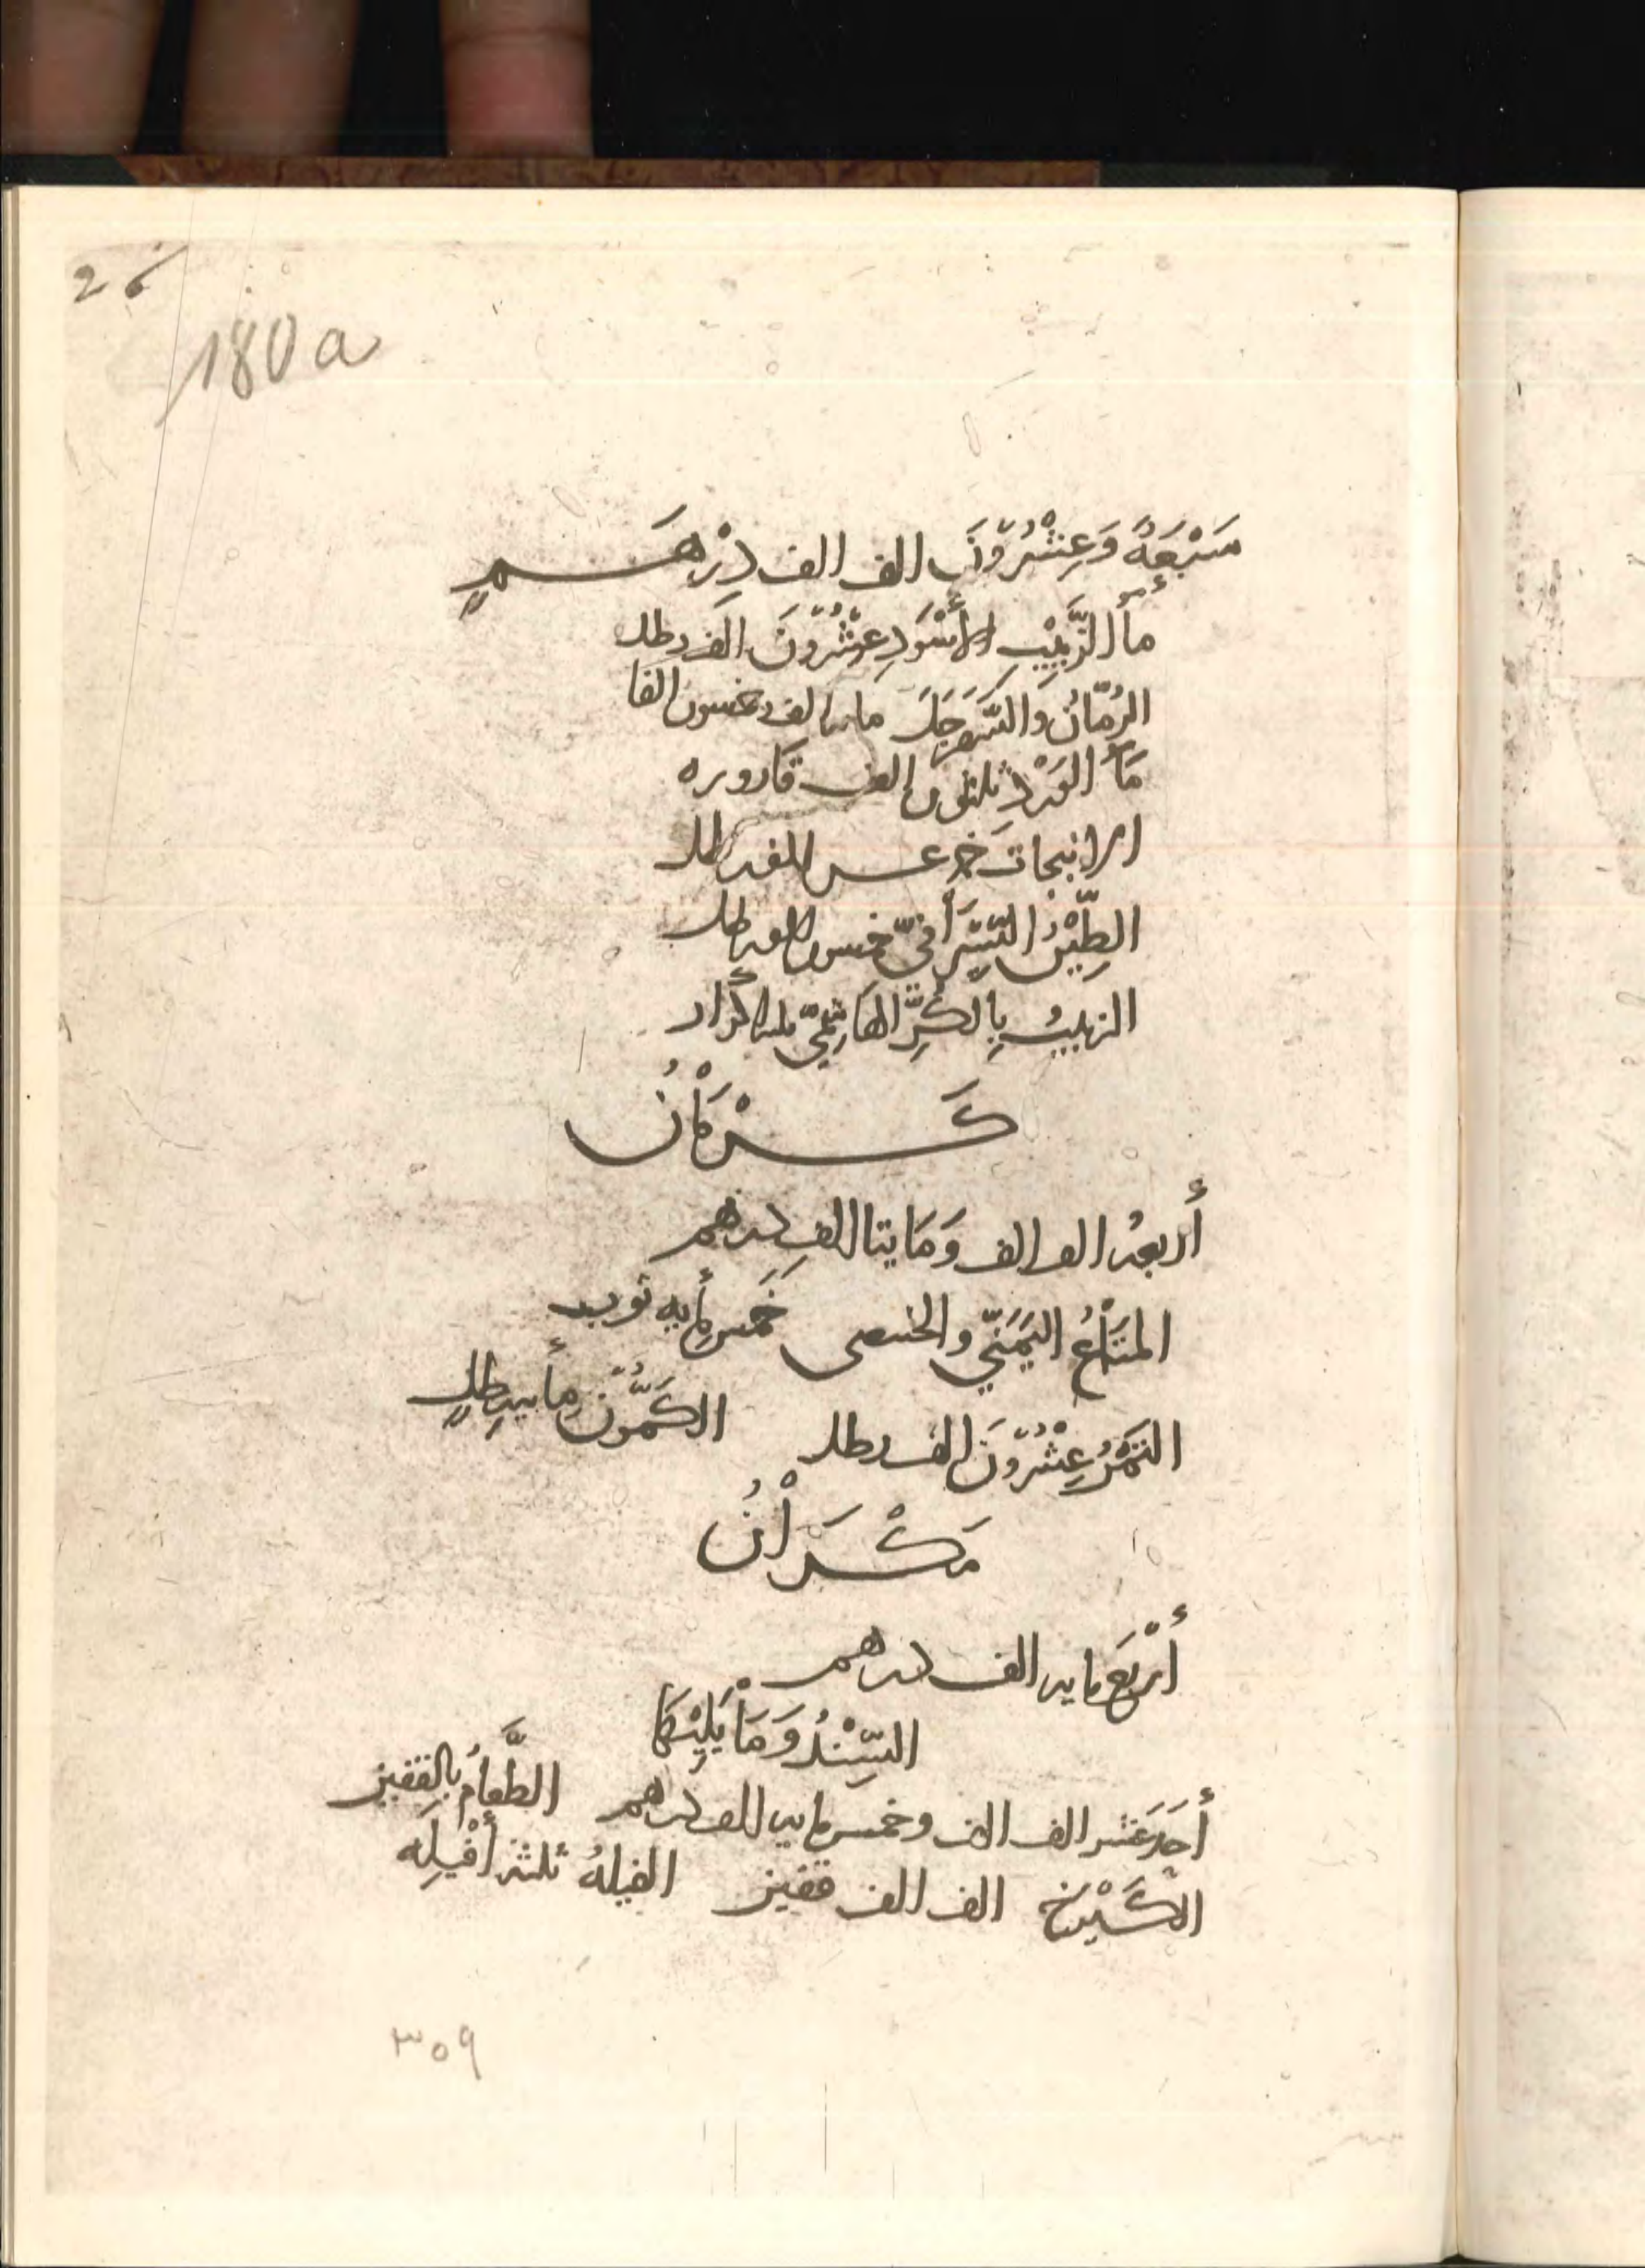 26
180a
سَبْعَةٌ وَعِشْرُوْنَ الف الف دِرْهَمٍ
مأ الزَّبِيْبِ الأَسْوَدِ عِشْرُوْنَ الف رطل
الرُمّانُ وَالسَّفَرْجَلَ مايتا الف وخمسون الفا
مَأ الوَرْدِ ثلثون الف قاروره
الانبجات خمسه عسر الف رطل
الطِّيْنُ السِّيْرَافيّ خمسون الف رطل
الزبيبُ بِالكُرِّ الهَاشِمِيّ ثلثه اكرار
كَرْمَانُ
أربعه الف الف وَمَايتا الف درهم
المتَاعُ اليَمَنيّ والخنصى خَمس مأيه ثوب
التَمْرُ عِشْرُوْنَ الف رطل الكَمُّوْن مِأيه رِطلٍ
مَكْرَانُ
أرْبَع مايه الف درهم
السِّنْدُ وَمَا يَلِيْهَا
أحَدَ عَشر الف الف وخمس مايه الف درهم الطَّعامُ بِالقفيز
الكَيْرَخ الف الف قفيز الفيلهُ ثلثه أفْيِلَه
٣٥٩